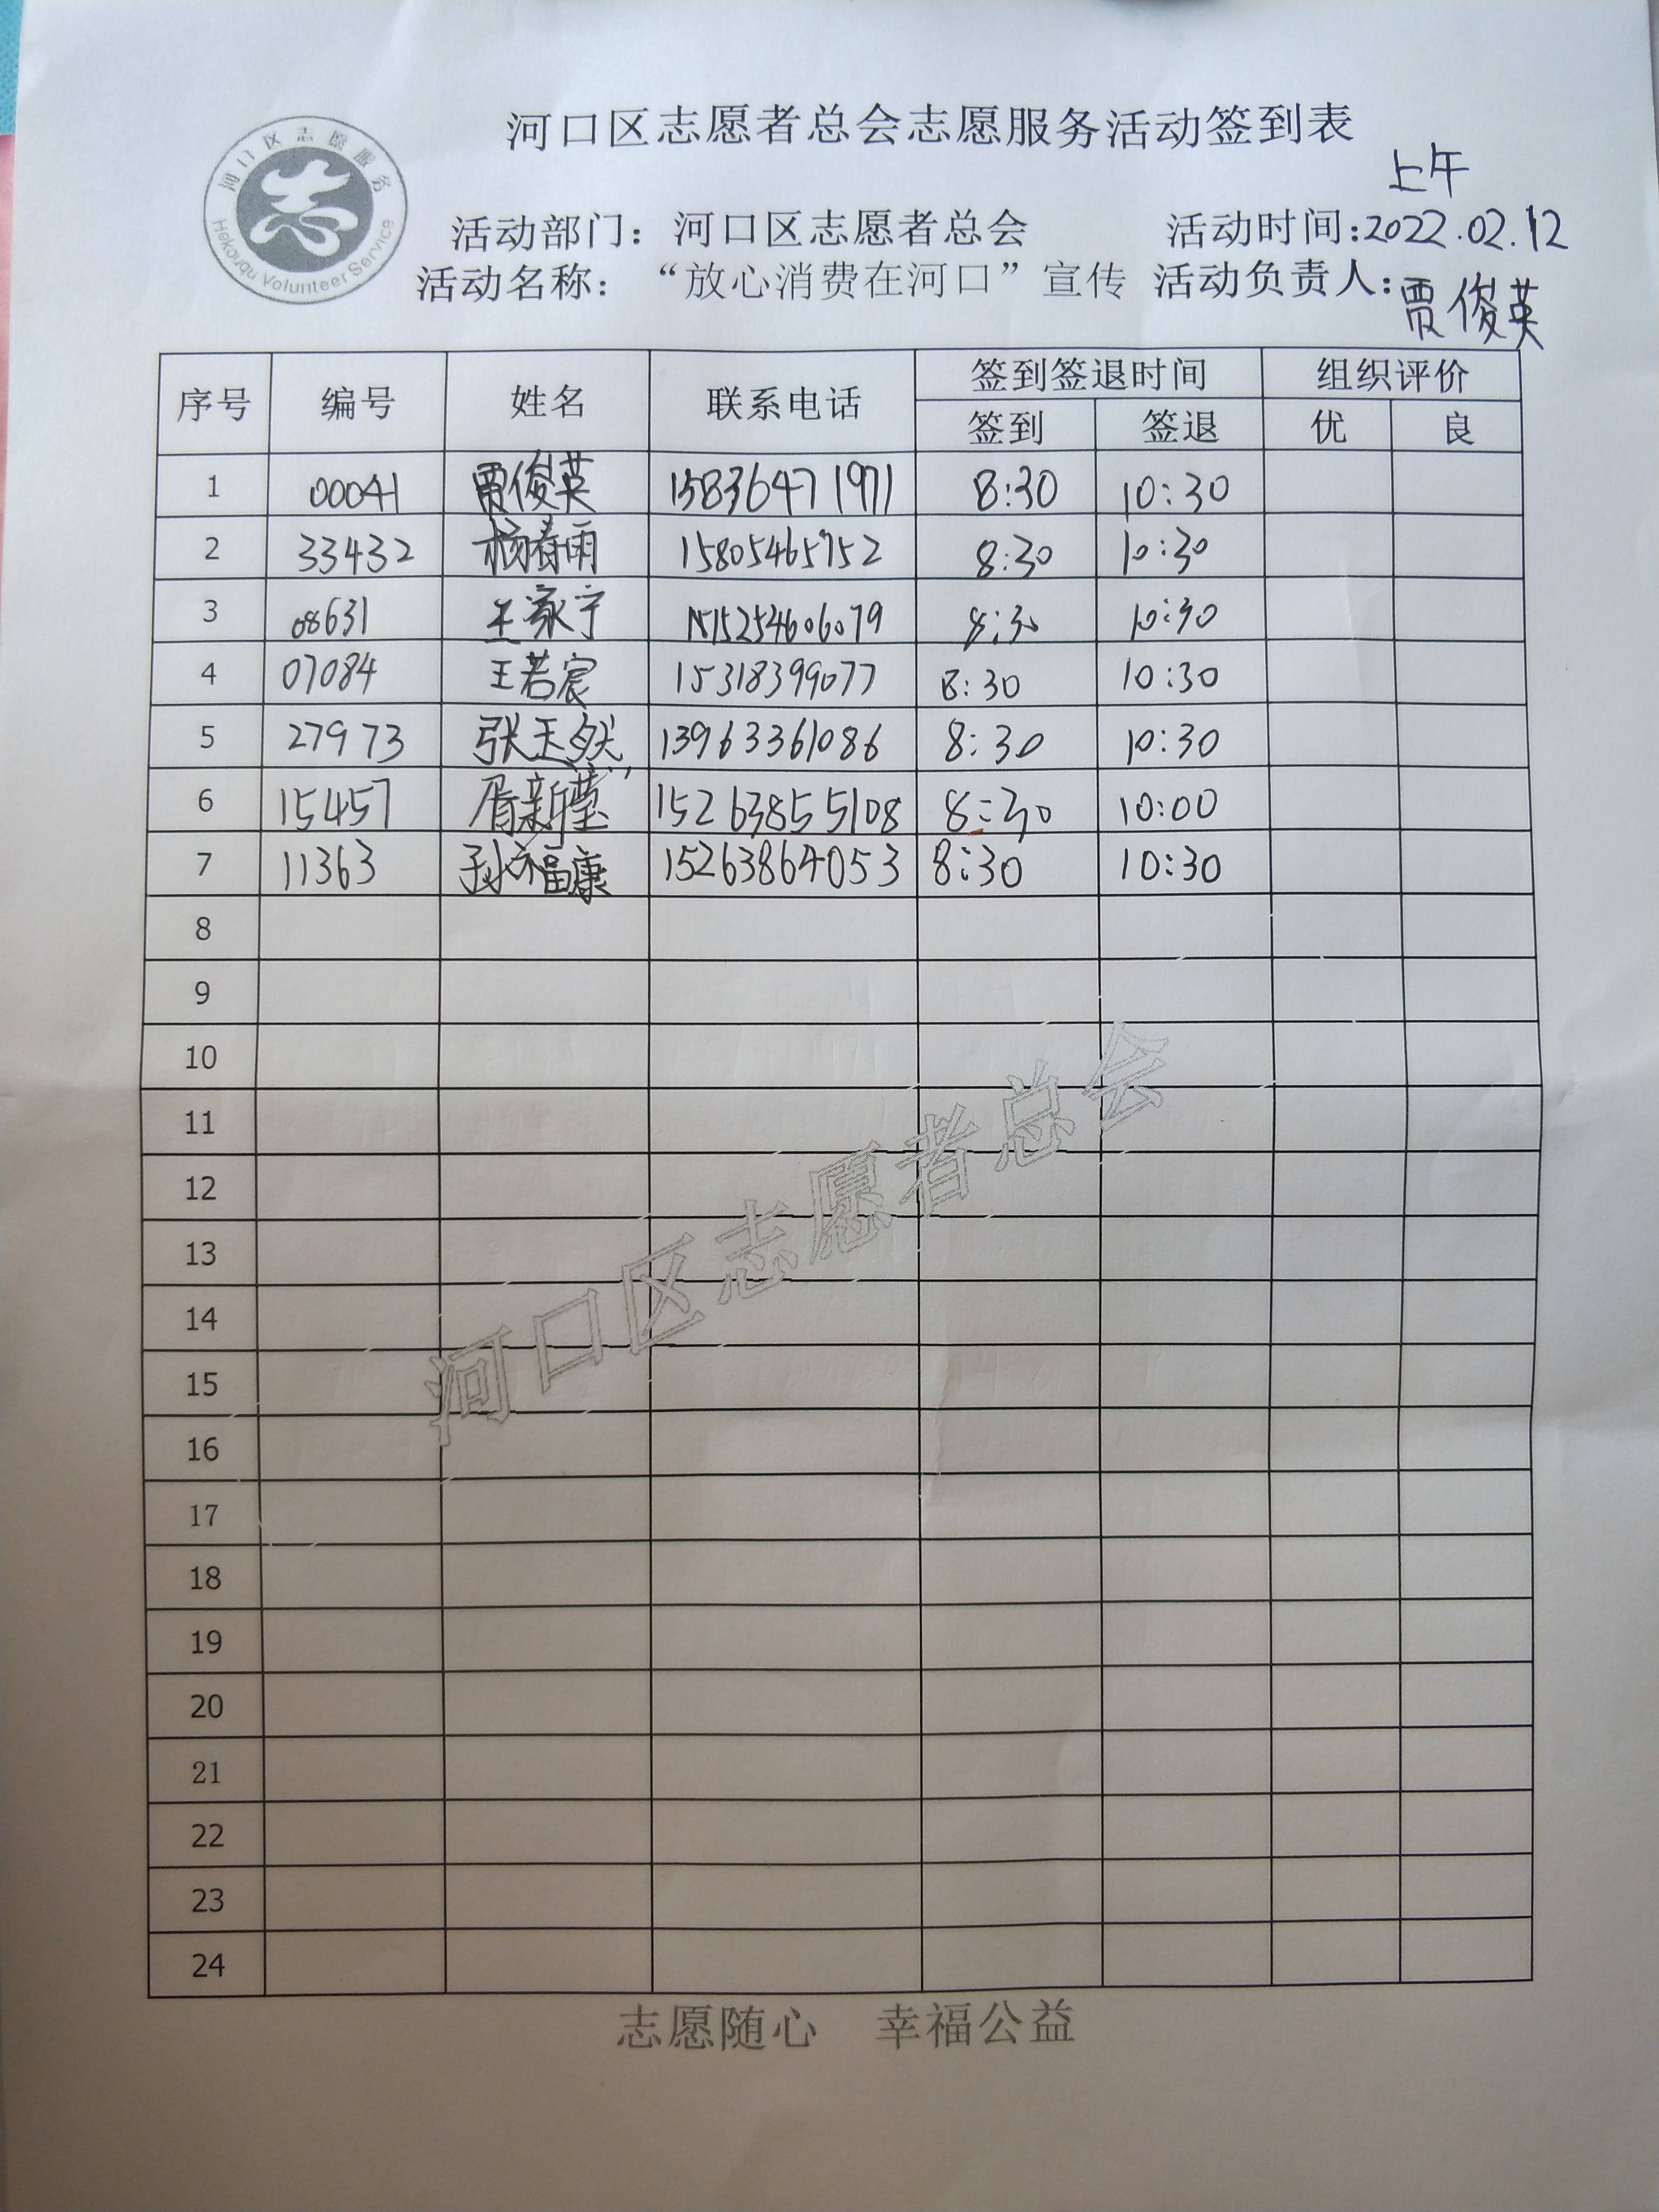 河口区志愿者总会志愿服务活动签到表
河口区志愿服务
志
Hekouqu Volunteer Service
上午
活动部门：河口区志愿者总会 活动时间：2022.02.12
活动名称：“放心消费在河口”宣传 活动负责人：贾俊英
序号 编号 姓名 联系电话 签到签退时间 组织评价
签到 签退 优 良
1 00041 贾俊英 15836471971 8:30 10:30
2 33432 杨春雨 15805465752 8:30 10:30
3 08631 王家宁 8:30 10:30
4 07084 王若宸 15318399077 8:30 10:30
5 27973 张玉然 13963361086 8:30 10:30
6 15457 胥新莹 15263855108 8:30 10:00
7 11363 孙福康 15263864053 8:30 10:30
8
9
10
11
12
13
14
15
16
17
18
19
20
21
22
23
24
河口区志愿者总会
志愿随心 幸福公益